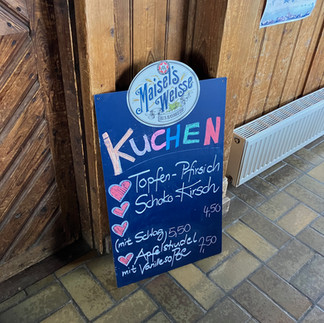 Maisel's
Weisse
KUCHEN
Topfen-Pfirsich
Schoko-Kirsch
4,50
(mit Schlag) 5,50
Apfelstrudel
mit Vanillesoße 7,50